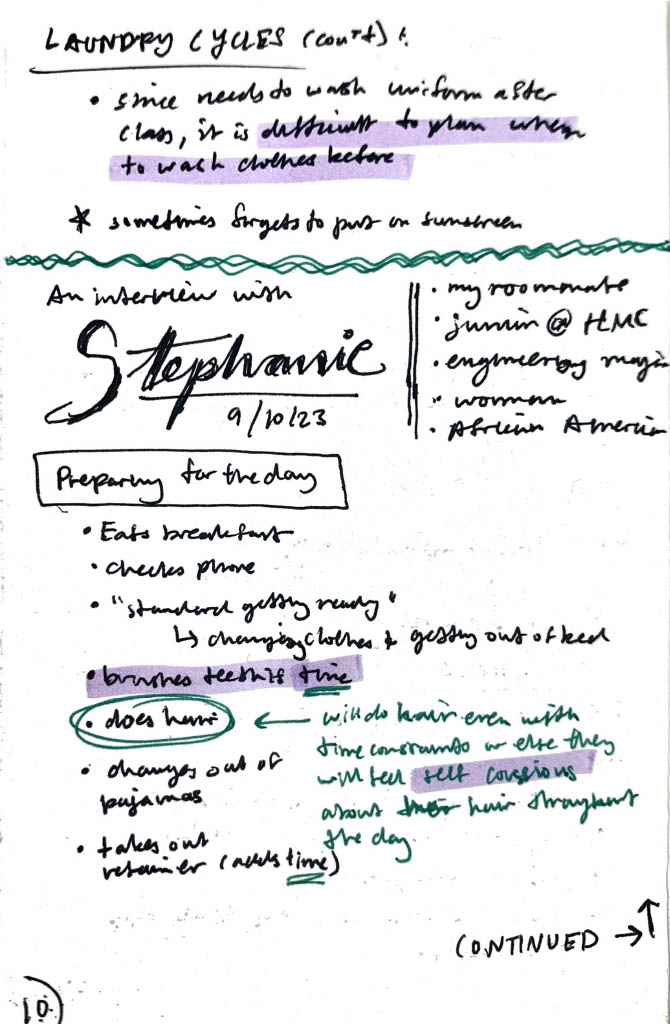 LAUNDRY CYCLES (cont):
• since needs to wash uniform after
class, it is difficult to plan when
to wash clothes before
* sometimes forgets to put on sunscreen
An interview with
Stephanie
9/10/23
• my roommate
• junior @ HMC
• engineering major
• woman
• African American
Preparing for the day
• Eats breakfast
• checks phone
• "standard getting ready"
↳ changing clothes & getting out of bed
• brushes teeth if time
• does hair
← will do hair even with
time constraints or else they
will feel self conssious
about hair throughout
the day.
• changes out of
pajamas
• takes out
retainer (adds time)
CONTINUED → ↑
10